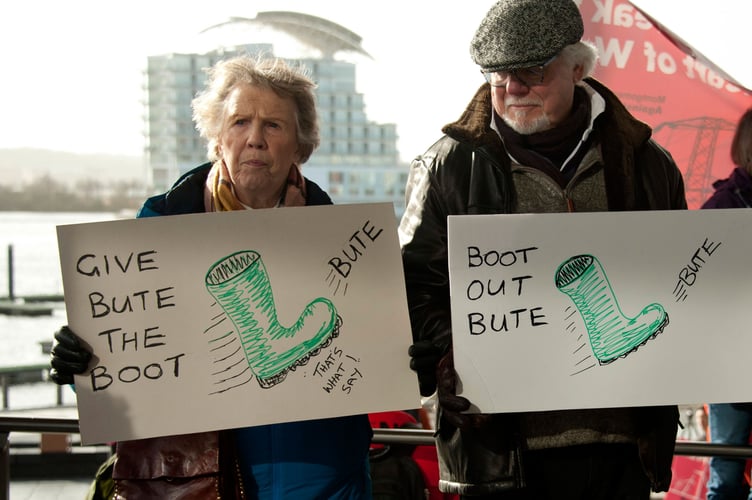 GIVE
BUTE
THE
BOOT
BUTE
THAT'S
WHAT I
SAY!
BOOT
OUT
BUTE
BUTE
eak
eart of W
Montgom
Against